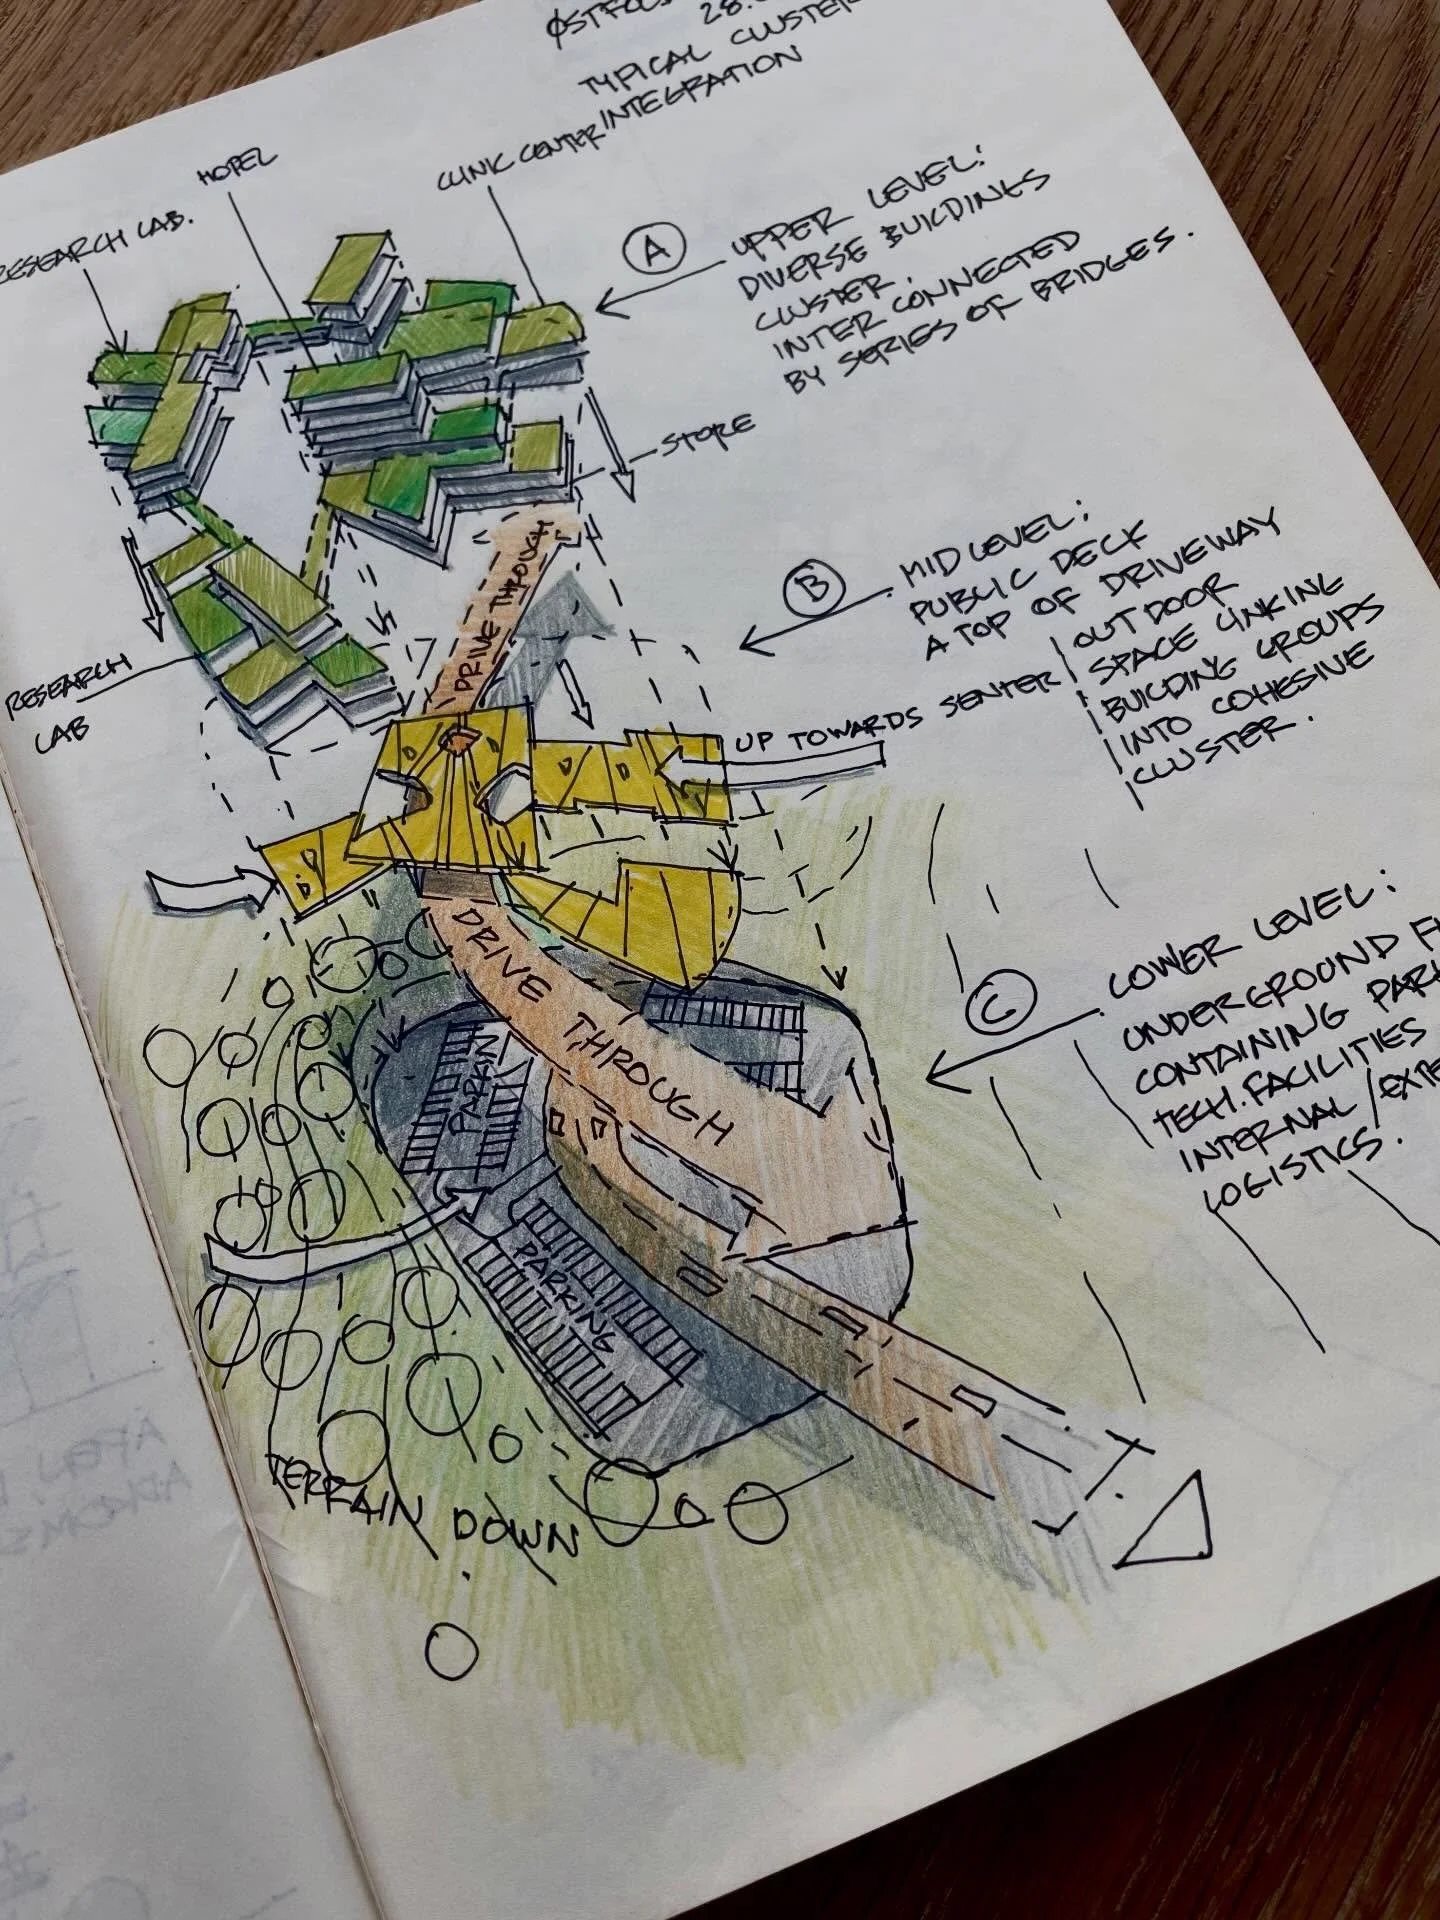 28.
TYPICAL CLUSTER
INTEGRATION
CLINIC CENTER
HOTEL
RESEARCH LAB.
A
UPPER LEVEL:
DIVERSE BUILDINGS
CLUSTER.
INTER CONNECTED
BY SERIES OF BRIDGES.
STORE
DRIVE THROUGH
RESEARCH
LAB
B
MID LEVEL:
PUBLIC DECK
A TOP OF DRIVEWAY
OUTDOOR
SPACE LINKING
BUILDING GROUPS
INTO COHESIVE
CLUSTER.
UP TOWARDS SENTER
DRIVE
THROUGH
C
LOWER LEVEL:
UNDERGROUND
CONTAINING
TECH. FACILITIES
INTERNAL /
LOGISTICS.
PARKIN
PARKING
TERRAIN DOWN